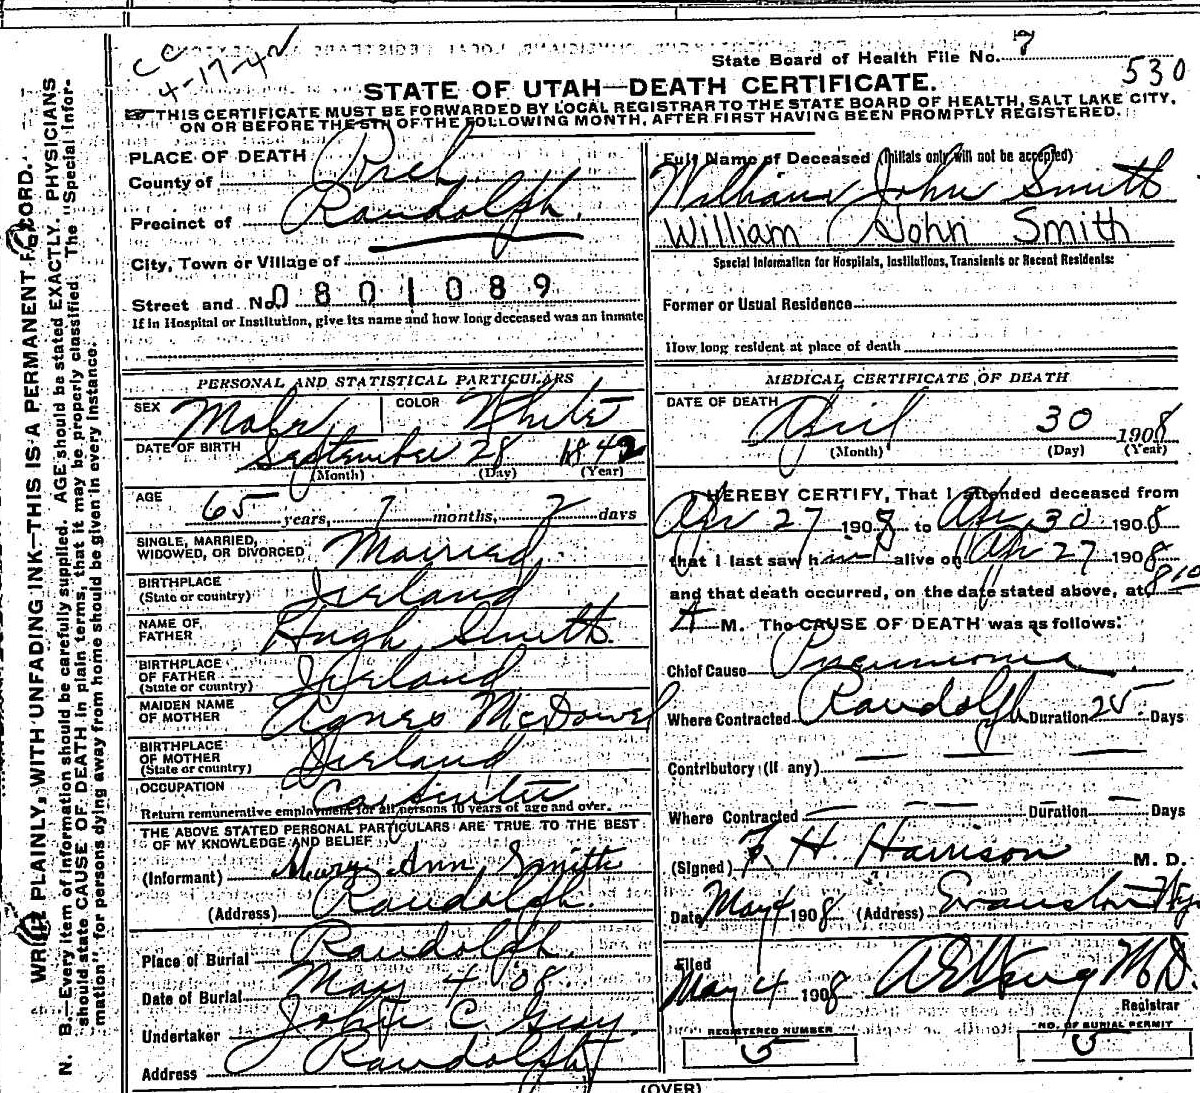 CC
4-17-42
State Board of Health File No. 7
530
STATE OF UTAH—DEATH CERTIFICATE.
THIS CERTIFICATE MUST BE FORWARDED BY LOCAL REGISTRAR TO THE STATE BOARD OF HEALTH, SALT LAKE CITY,
ON OR BEFORE THE 5TH OF THE FOLLOWING MONTH, AFTER FIRST HAVING BEEN PROMPTLY REGISTERED.
PLACE OF DEATH
County of Rich
Precinct of Randolph.
City, Town or Village of
Street and No. 0801089
If in Hospital or Institution, give its name and how long deceased was an inmate
Full Name of Deceased (Initials only will not be accepted)
William John Smith
William John Smith
Special Information for Hospitals, Institutions, Transients or Recent Residents:
Former or Usual Residence
How long resident at place of death
PERSONAL AND STATISTICAL PARTICULARS
SEX Male COLOR White
DATE OF BIRTH September 28 1842
(Month) (Day) (Year)
AGE
65 years, 7 months, 2 days
SINGLE, MARRIED,
WIDOWED, OR DIVORCED Married
BIRTHPLACE
(State or country) Ireland
NAME OF
FATHER Hugh Smith.
BIRTHPLACE
OF FATHER
(State or country) Ireland
MAIDEN NAME
OF MOTHER Agnes McDowel
BIRTHPLACE
OF MOTHER
(State or country) Ireland
OCCUPATION Carpenter
Return remunerative employment for all persons 10 years of age and over.
THE ABOVE STATED PERSONAL PARTICULARS ARE TRUE TO THE BEST
OF MY KNOWLEDGE AND BELIEF
(Informant) Mary Ann Smith
(Address) Randolph.
Place of Burial Randolph.
Date of Burial May 4 08.
Undertaker John C. Gray.
Address Randolph
MEDICAL CERTIFICATE OF DEATH
DATE OF DEATH
April 30 1908
(Month) (Day) (Year)
I HEREBY CERTIFY, That I attended deceased from
Apr 27 1908 to Apr 30 1908
that I last saw him alive on Apr 27 1908
and that death occurred, on the date stated above, at 8 10
A M. The CAUSE OF DEATH was as follows:
Chief Cause Pneumonia
Where Contracted Randolph Duration 25 Days
Contributory (if any)
Where Contracted Duration Days
(Signed) F. H. Harrison M. D.
Date May 4 1908 (Address) Evanston Wyo
Filed
May 4 1908 M.D.
Registrar
REGISTERED NUMBER
5
NO. OF BURIAL PERMIT
5
(OVER)
WRITE PLAINLY, WITH UNFADING INK—THIS IS A PERMANENT RECORD.
N. B.—Every item of information should be carefully supplied. AGE should be stated EXACTLY. PHYSICIANS
should state CAUSE OF DEATH in plain terms, that it may be properly classified. The "Special Infor-
mation" for persons dying away from home should be given in every instance.